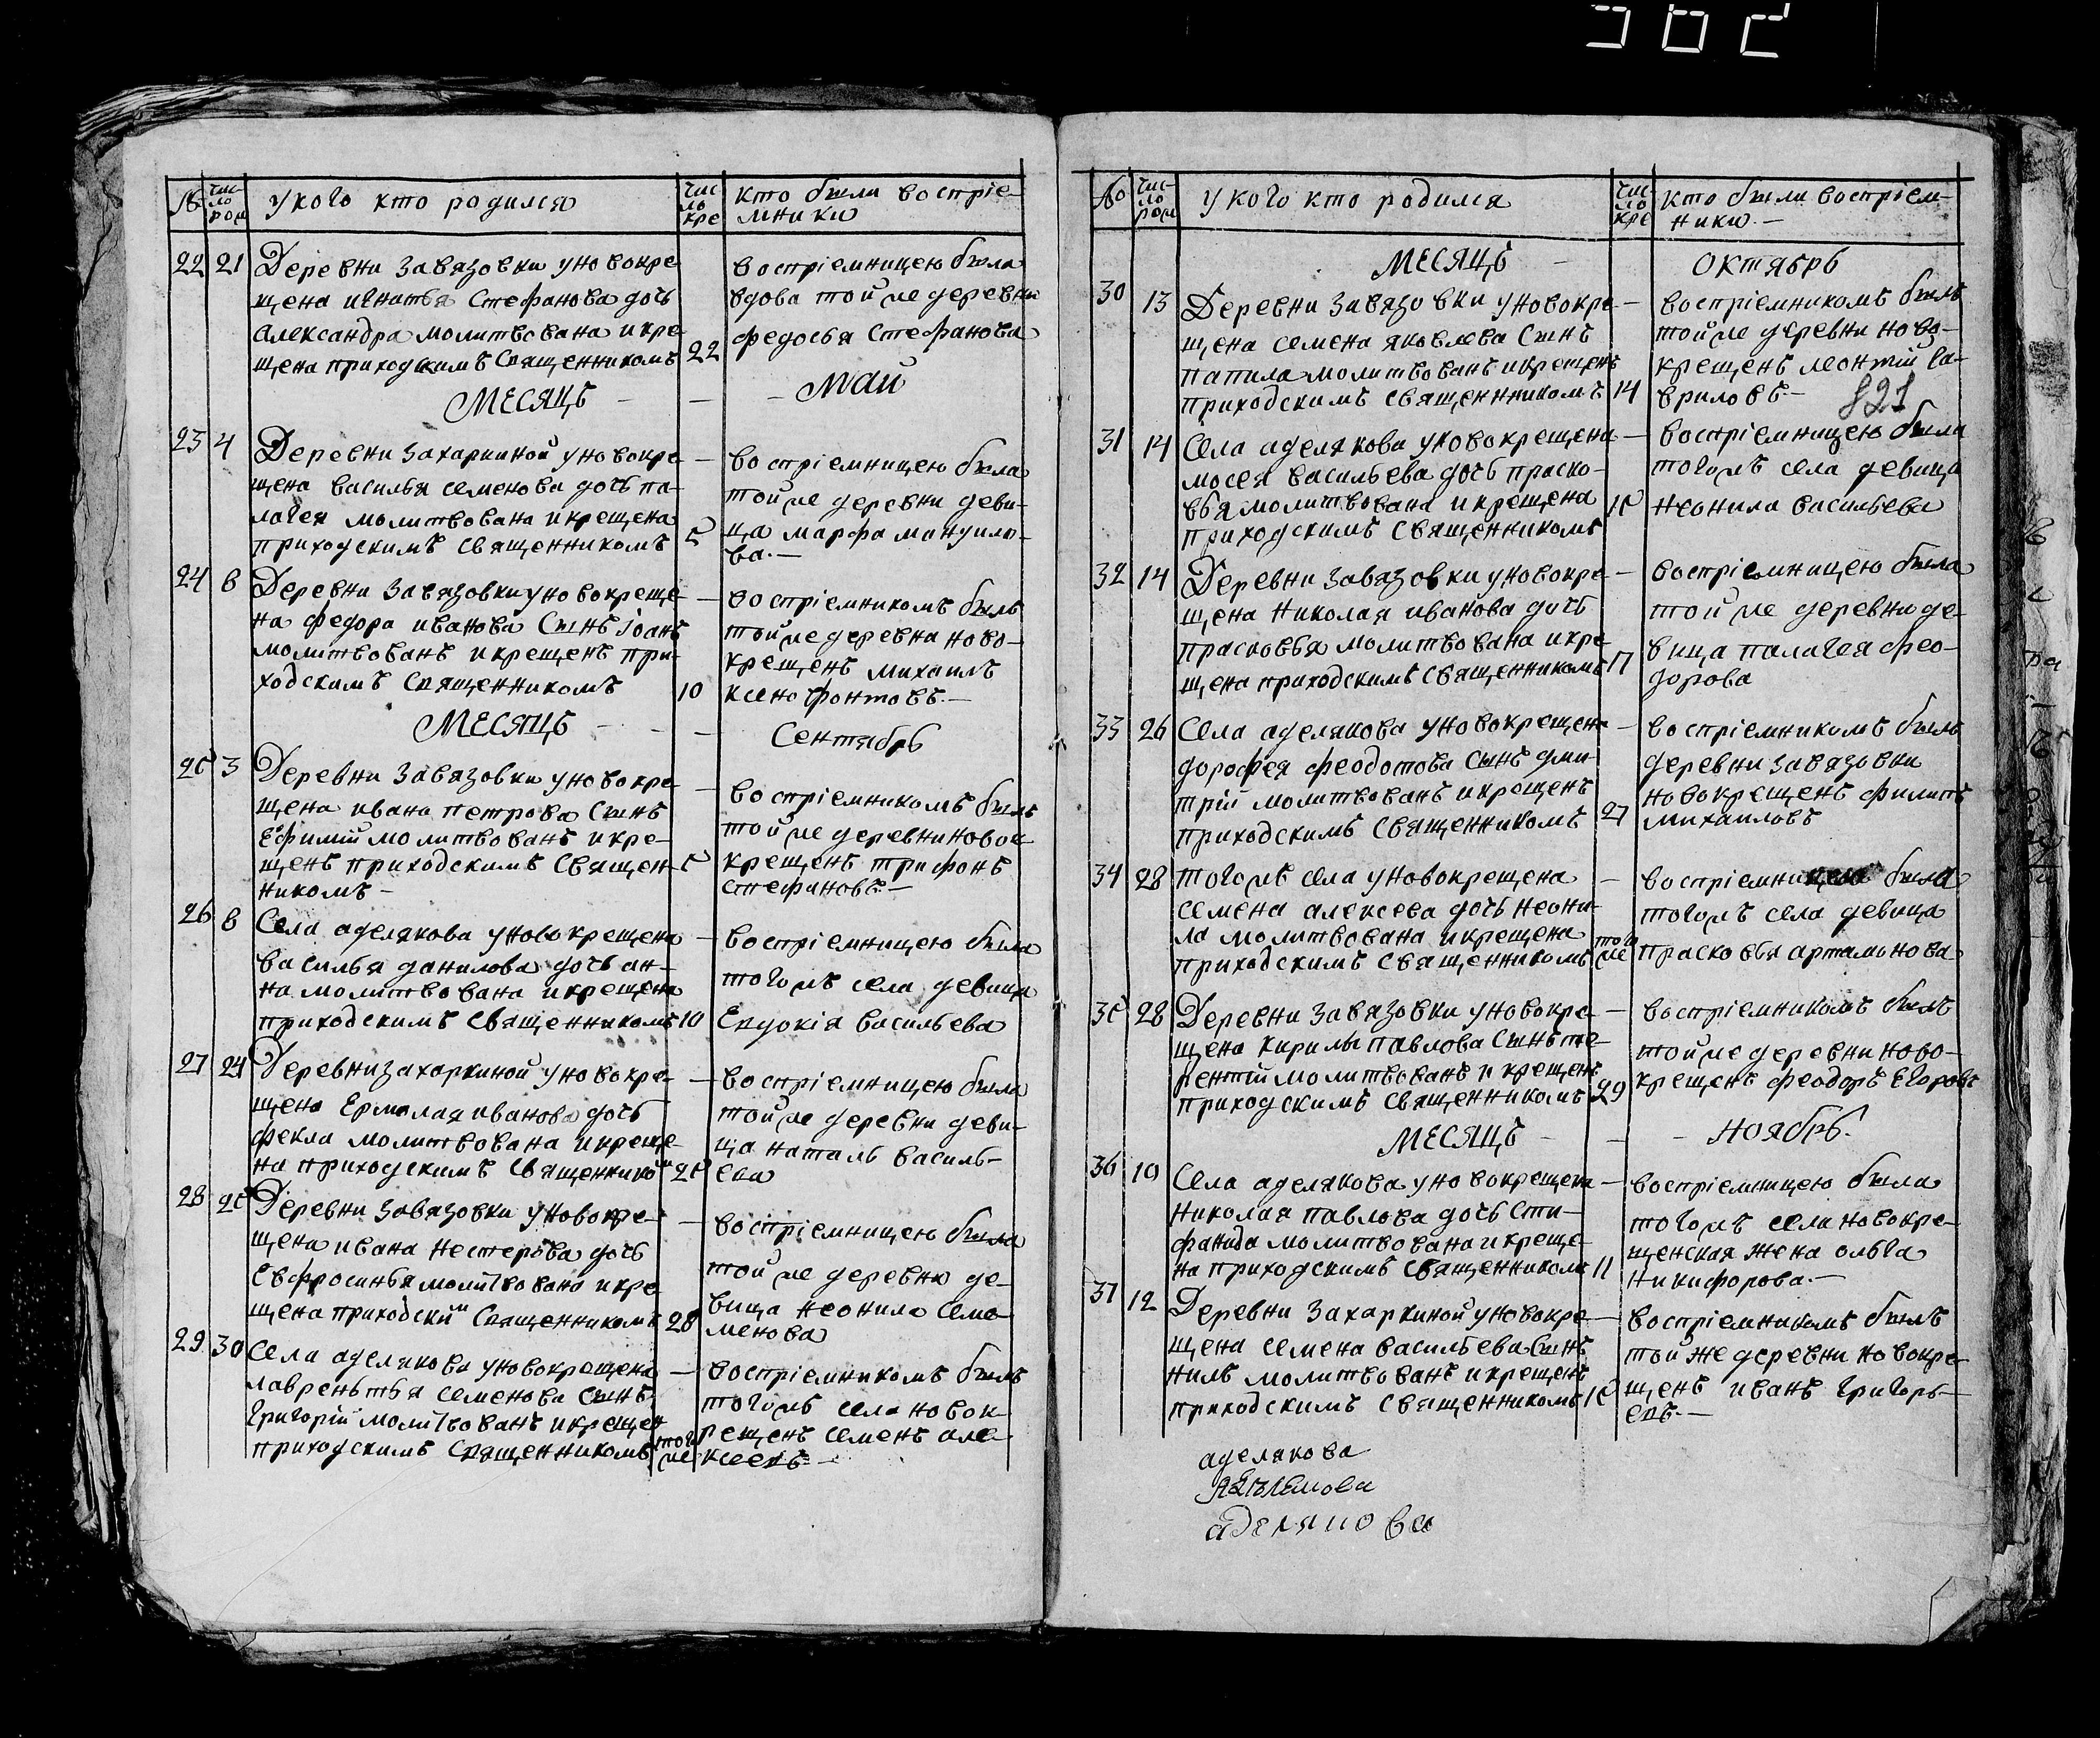 562
№
чис-
ло
рож
у кого кто родился
чис
ло
кре
кто были воспріе-
мники
22 21 Деревни Завязовки у новокре
щена игнатья Стефанова дочь
Александра молитвована и кре
щена приходскимъ Священникомъ 22
воспріемницею была
вдова той же деревни
федосья Стефанова
МЕСЯЦЪ — — — май
23 4 Деревни Захаркиной у новокре —
щена василья семенова дочь па-
лагея молитвована и крещена
приходскимъ священникомъ 5
воспріемницею была
той же деревни деви-
ца марфа мануило-
ва.—
24 8 Деревни Завязовки у новокреще —
на федора иванова Сынъ Іоанъ
молитвованъ и крещенъ при-
ходскимъ священникомъ 10
воспріемникомъ былъ
той же деревни ново-
крещенъ михаилъ
ксенофонтовъ.—
МЕСЯЦЪ — — Сентябрь
25 3 Деревни Завязовки у новокре —
щена ивана петрова Сынъ
Ефимій молитвованъ и кре-
щенъ приходскимъ Священ- 5
никомъ —
воспріемникомъ былъ
той же деревни новок
крещенъ трифонъ
стефановъ.—
26 8 Села аделякова у новокрещена —
василья данилова дочь ан-
на молитвована и крещена
приходскимъ Священникомъ 10
воспріемницею была
тогожъ села девица
Евдокія васильева
27 24 Деревни захаркиной у новокре- —
щена Ермилая иванова дочь
фекла молитвована и креще-
на приходскимъ Священнико м 25
воспріемницею была
той же деревни деви-
ца наталь василь-
ева
28 25 Деревни Завязовки у новокре- —
щена ивана нестерова дочь
Евфросинья молитвована и кре
щена приходски м Священникомъ 28
воспріемницею была
той же деревни де-
вица неонила Семе-
менова
29 30 Села аделякова у новокрещена —
лаврентья семенова Сынъ
григорій молитвованъ и крещен
приходскимъ Священникомъ того
же
воспріемникомъ былъ
тогожъ села новок-
рещенъ семенъ але-
ксеевъ.—
№
чис-
ло
рож
у кого кто родился
чис
ло
кре
кто были воспріем-
ники.—
МЕСЯЦЪ — Октябрь
30 13 Деревни Завязовки у новокре —
щена семена яковлева Сынъ
папила молитвованъ и крещенъ
приходскимъ священникомъ 14
воспріемникомъ былъ
той же деревни ново-
крещенъ леонтій га-
вриловъ.—
821
31 14 Села аделякова у новокрещена —
мосея васильева дочь праско-
вья молитвована и крещена 15
приходскимъ Священникомъ
воспріемницею была
тогожъ села девица
неонила васильева
32 14 Деревни Завязовки у новокре —
щена Николая иванова дочь
прасковья молитвована и кре-
щена приходскимъ священникомъ 17
воспріемницею была
той же деревни де-
вица палагея фео-
дорова
33 26 Села аделякова у новокрещена —
дорофея феодотова Сынъ дми-
трій молитвованъ и крещенъ
приходскимъ священникомъ 27
воспріемникомъ былъ
деревни завязовки
новокрещенъ филипъ
михаиловъ
34 28 тогожъ села у новокрещена —
семена алексева дочь неони-
ла молитвована и крещена
приходскимъ священникомъ того
же
воспріемницею была
тогожъ села девица
прасковья артамонова
35 28 Деревни Завязовки у новокре- —
щена кирилы павлова Сынъ те-
рентій молитвованъ и крещенъ
приходскимъ священникомъ 29
воспріемникомъ былъ
той же деревни ново-
крещенъ феодоръ Егоровъ
МЕСЯЦЪ — — — ноябрь.
36 10 Села аделякова у новокрещена —
николая павлова дочь Сти-
фанида молитвована и креще-
на приходскимъ священникомъ 11
воспріемницею была
тогожъ села новокре-
щенская жена ольга
никифорова.—
37 12 Деревни Захаркиной у новокре —
щена семена васильева Сынъ
нилъ молитвованъ и крещенъ
приходскимъ священникомъ 15
воспріемникомъ былъ
той же деревни новокре-
щенъ иванъ григорь-
евъ.—
аделякова
аделякова